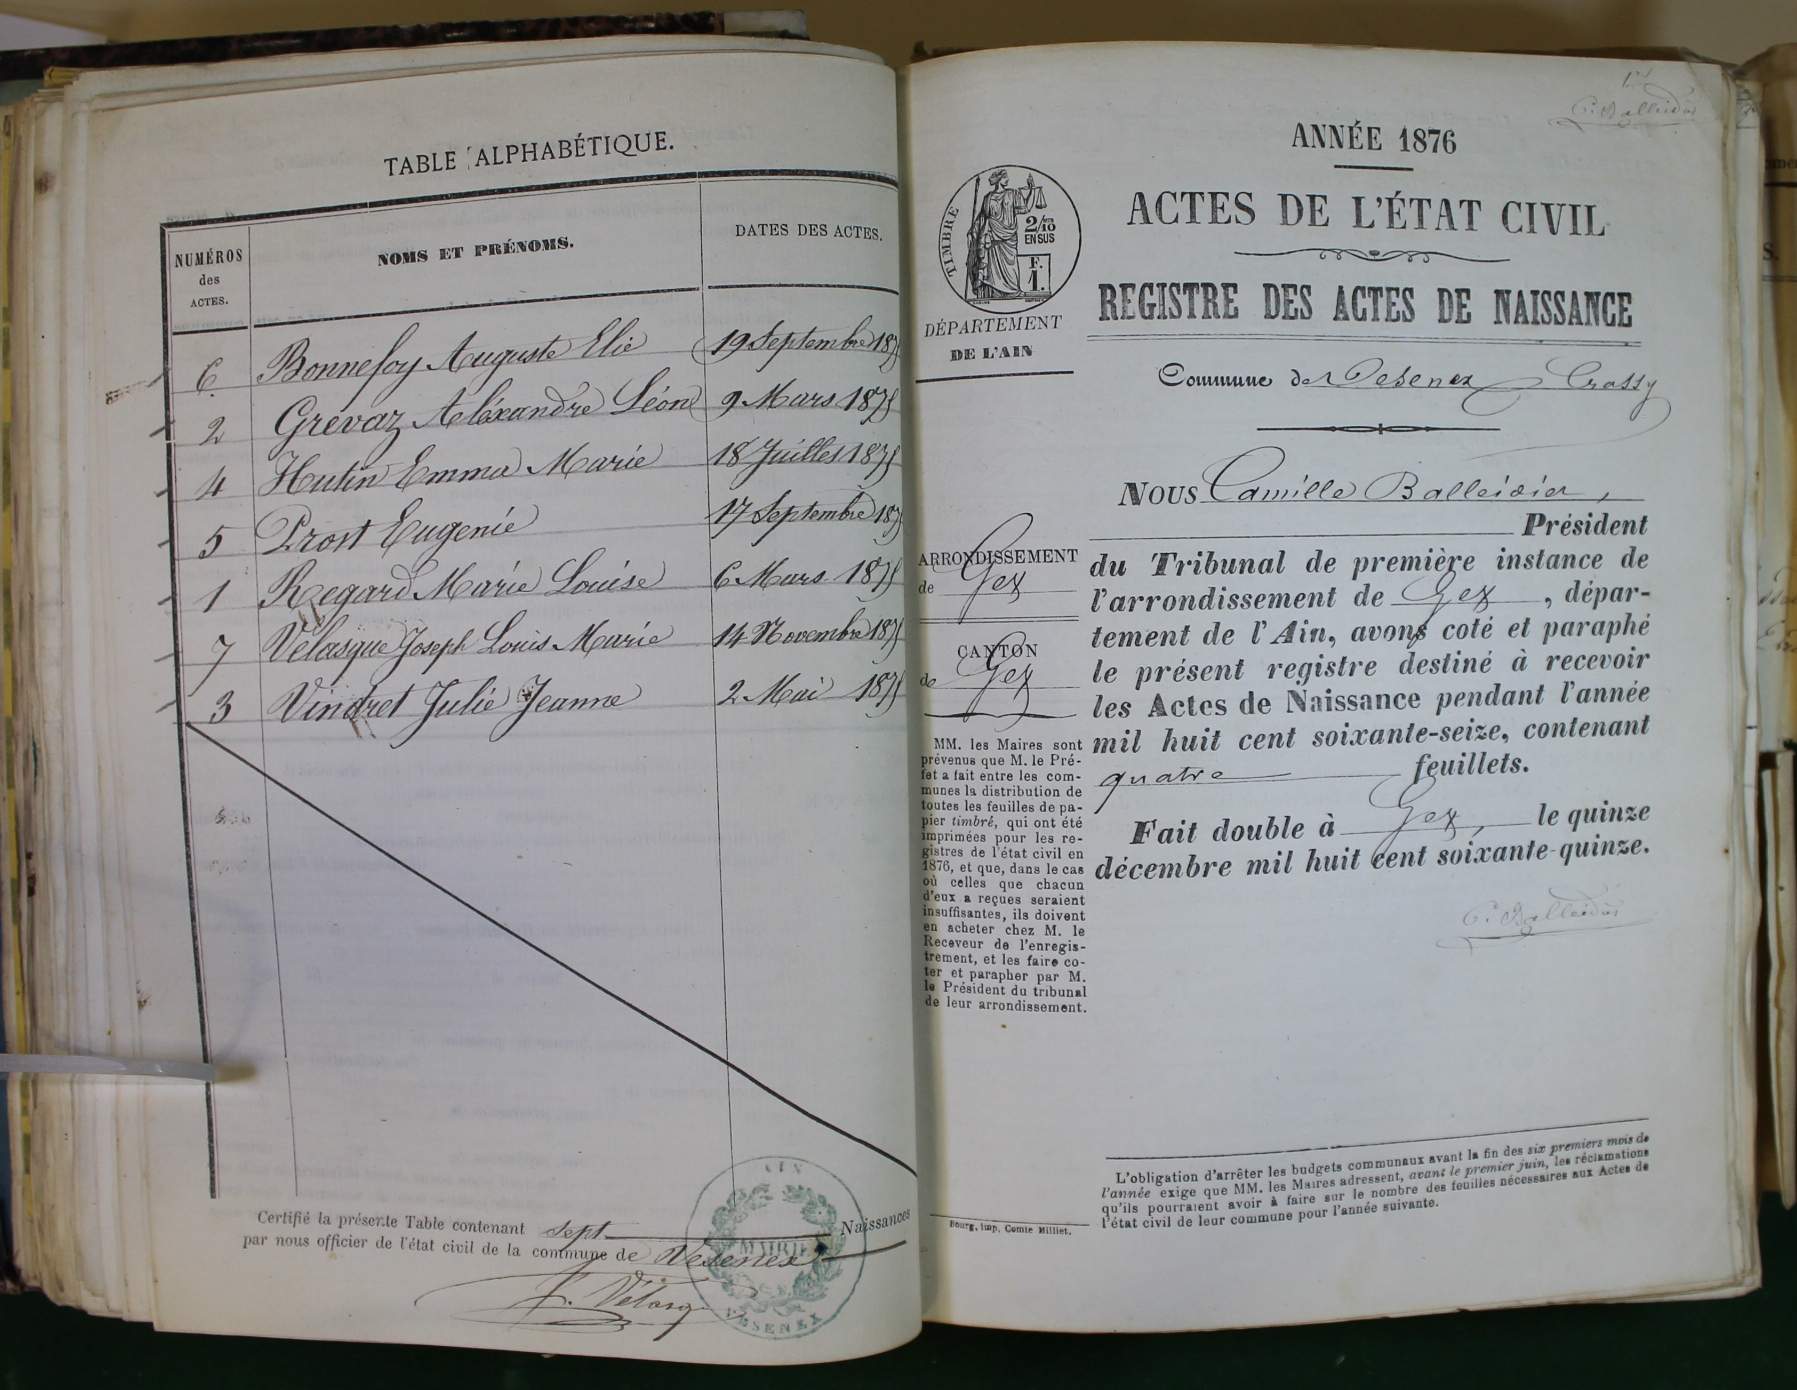 TABLE ALPHABÉTIQUE.
NUMÉROS
des
ACTES.
NOMS ET PRÉNOMS.
DATES DES ACTES.
6 Bonnefoy Auguste Elie 19 Septembre 187
2 Grévaz Aléxandre Léon 9 Mars 1875
4 Hutin Emma Marie 18 Juillet 1875
5 Prost Eugenie 17 Septembre 187
1 Regard Marie Louise 6 Mars 1875
7 Vélasque Joseph Louis Marie 14 Novembre 1875
3 Vindret Julie Jeanne 2 Mai 1875
Certifié la présente Table contenant sept Naissances
par nous officier de l'état civil de la commune de Vesenex
F. Vélasq
AIN
MAIRIE
VESENEX
C. Balleidier
ANNÉE 1876
ACTES DE L'ÉTAT CIVIL
REGISTRE DES ACTES DE NAISSANCE
TIMBRE
2/10
EN SUS
F.
1.
DÉPARTEMENT
DE L'AIN
Commune de Vesenex Crassy
NOUS Camille Balleidier,
Président
du Tribunal de première instance de
l'arrondissement de Gex, dépar-
tement de l'Ain, avons coté et paraphé
le présent registre destiné à recevoir
les Actes de Naissance pendant l'année
mil huit cent soixante-seize, contenant
quatre feuillets.
Fait double à Gex, le quinze
décembre mil huit cent soixante-quinze.
C. Balleidier
ARRONDISSEMENT
de Gex
CANTON
de Gex
MM. les Maires sont
prévenus que M. le Pré-
fet a fait entre les com-
munes la distribution de
toutes les feuilles de pa-
pier timbré, qui ont été
imprimées pour les re-
gistres de l'état civil en
1876, et que, dans le cas
où celles que chacun
d'eux a reçues seraient
insuffisantes, ils doivent
en acheter chez M. le
Receveur de l'enregis-
trement, et les faire co-
ter et parapher par M.
le Président du tribunal
de leur arrondissement.
L'obligation d'arrêter les budgets communaux avant la fin des six premiers mois de
l'année exige que MM. les Maires adressent, avant le premier juin, les réclamations
qu'ils pourraient avoir à faire sur le nombre des feuilles nécessaires aux Actes de
l'état civil de leur commune pour l'année suivante.
Bourg, imp. Comte Milliet.